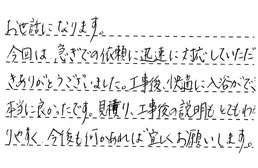 お世話になります。
今回は、急ぎでの依頼に迅速に対応していただ
きありがとうございました。工事後、快適に入浴がで
本当に良かったです。見積り、工事後の説明もとてもわか
りやすく 今後も何かあれば宜しくお願いします。